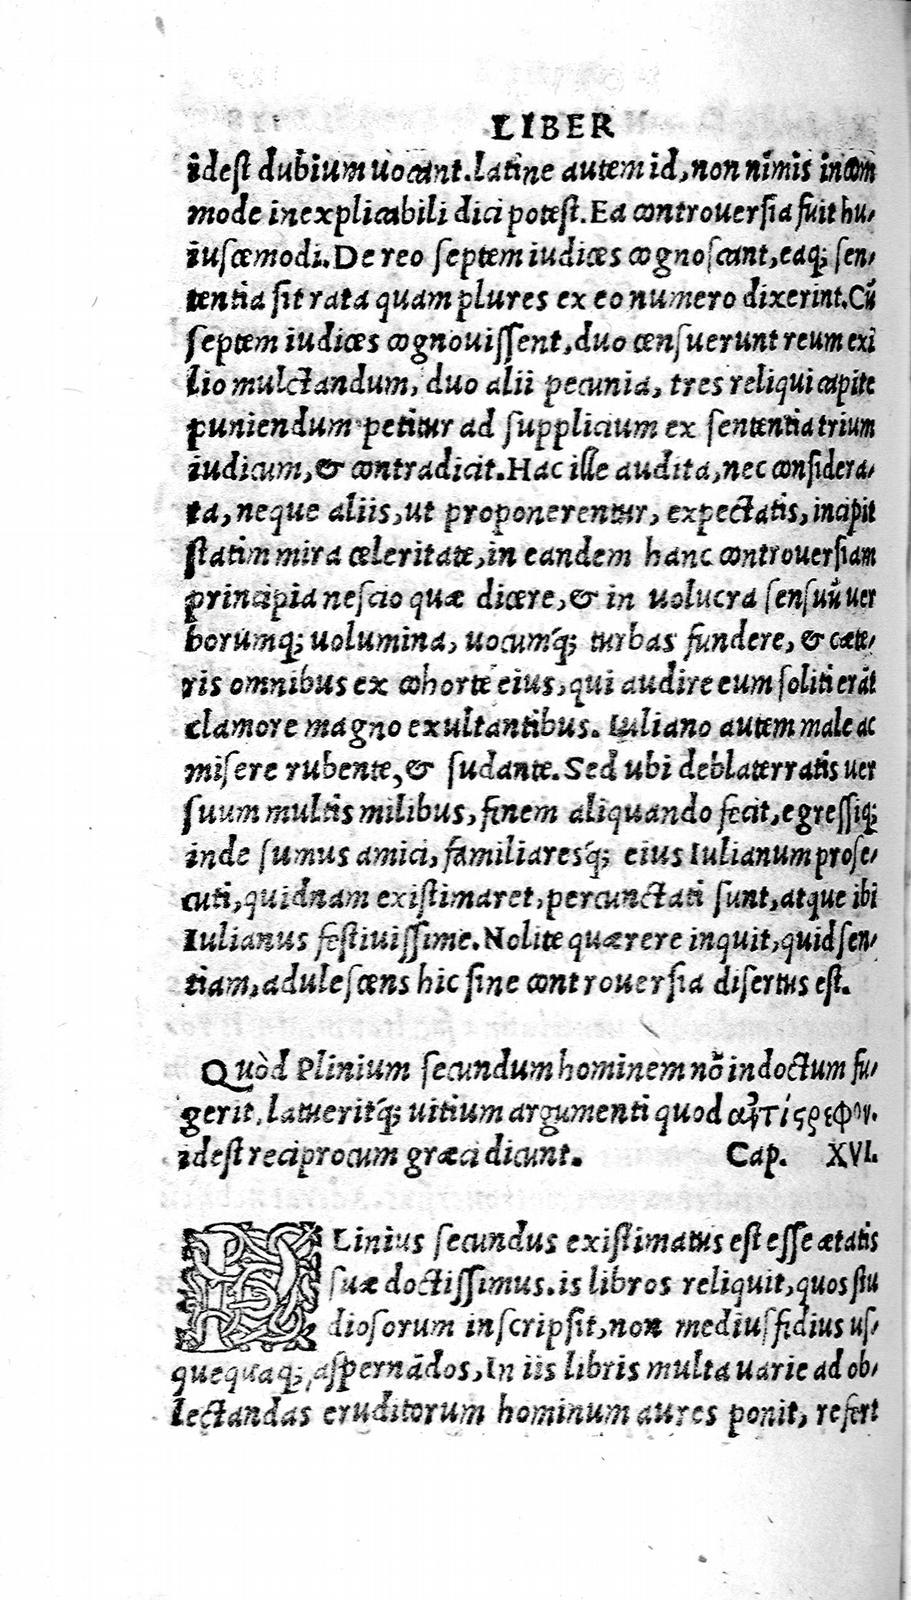 LIBER
idest dubium uocant. Latine autem id, non nimis incom
mode inexplicabili dici potest. Ea controuersia fuit hu,
iuscemodi. De reo septem iudices cognoscant, eaq; sen,
tentia sit rata quam plures ex eo numero dixerint. Cũ
septem iudices cognouissent, duo censuerunt reum exi
lio mulctandum, duo alii pecunia, tres reliqui capite
puniendum petitur ad supplicium ex sententia trium
iudicum, & contradicit. Hac ille audita, nec considera,
ta, neque aliis, ut proponerentur, expectatis, incipit
statim mira celeritate, in eandem hanc controuersiam
principia nescio quæ dicere, & in uolucra sensuũ uer
borumq; uolumina, uocumq́; turbas fundere, & cæte,
ris omnibus ex cohorte eius, qui audire eum soliti erãt
clamore magno exultantibus. Iuliano autem male ac
misere rubente, & sudante. Sed ubi deblaterratis uer
suum multis milibus, finem aliquando fecit, egressiq;
inde sumus amici, familiaresq́; eius Iulianum prose,
cuti, quidnam existimaret, percunctati sunt, atque ibi
Iulianus festiuissime. Nolite quærere inquit, quid sen,
tiam, adulescens hic sine controuersia disertus est.
Quòd Plinium secundum hominem nõ indoctum fu,
gerit, latueritq́; uitium argumenti quod ἀντίστρεφον.
idest reciprocum græci dicunt. Cap. XVI.
PLinius secundus existimatus est esse ætatis
suæ doctissimus. is libros reliquit, quos stu
diosorum inscripsit, non mediusfidius us,
quequaq; aspernãdos, In iis libris multa uarie ad ob,
lectandas eruditorum hominum aures ponit, refert